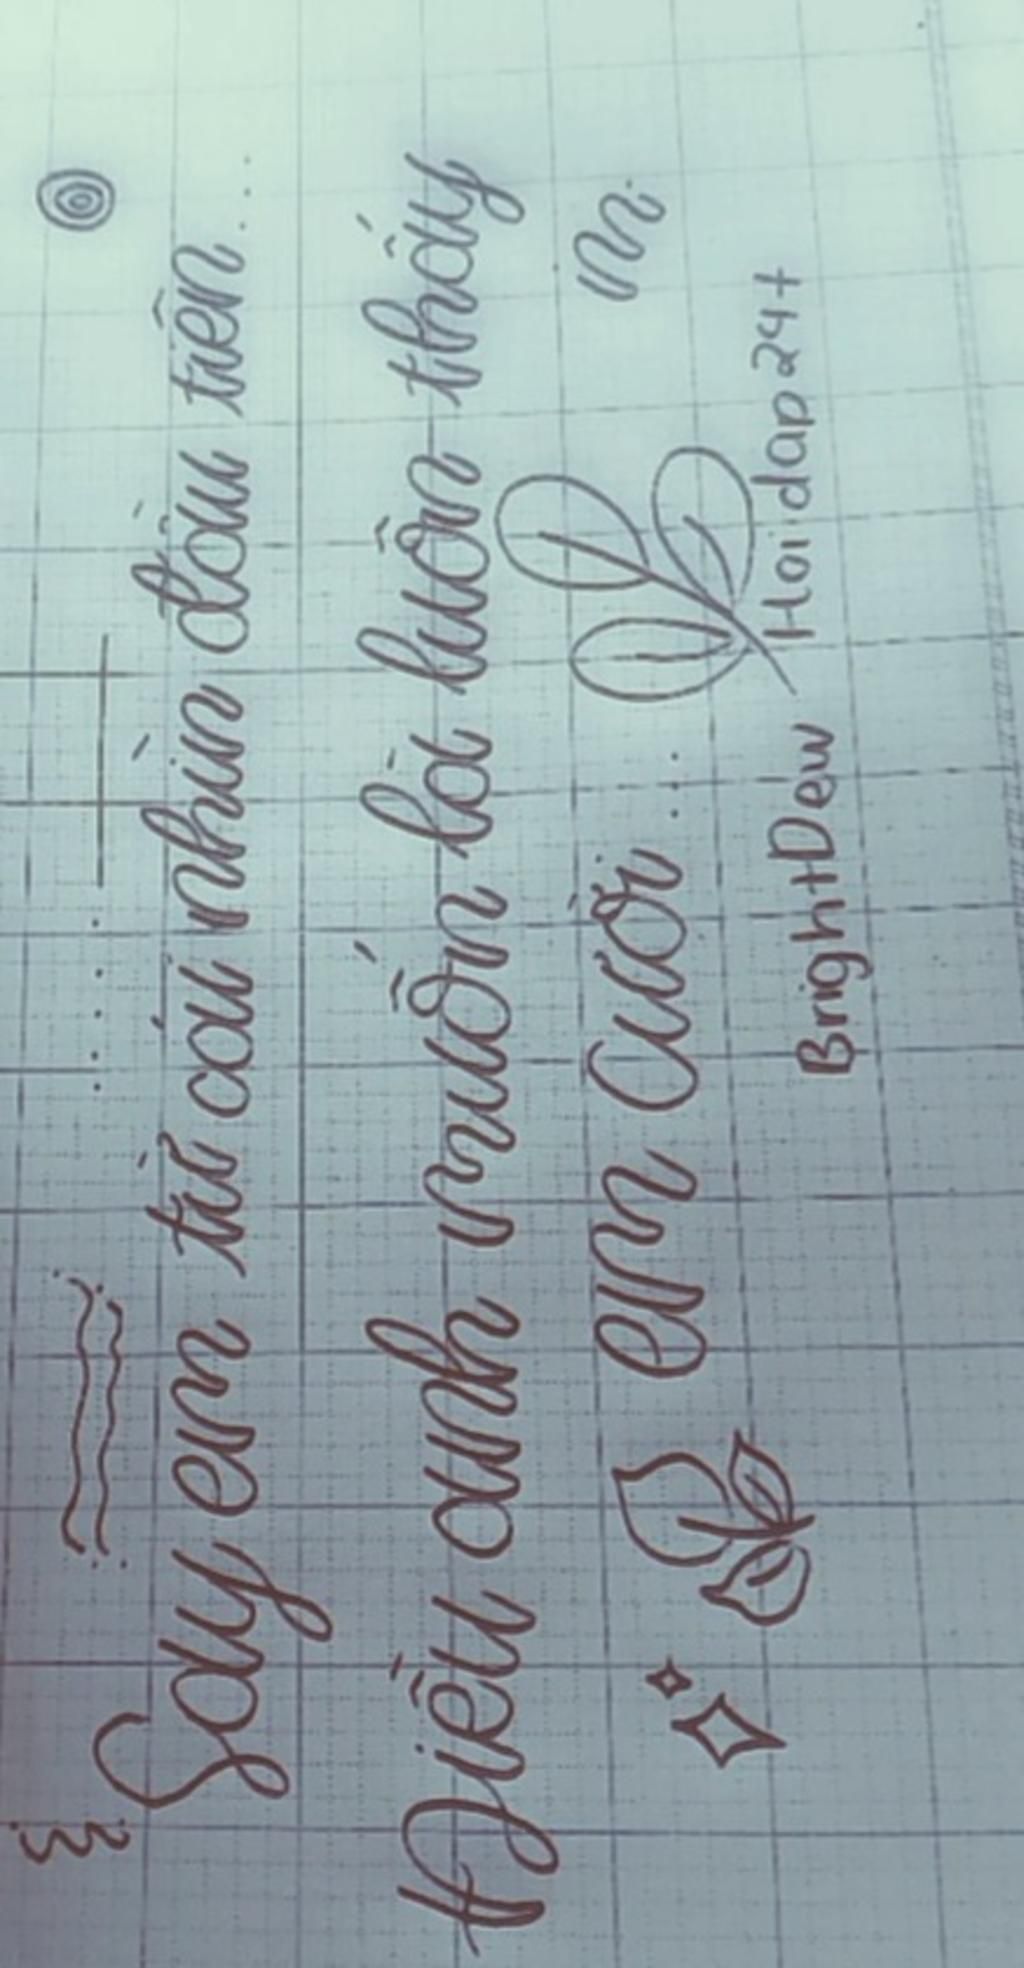 Say em từ cái nhìn đầu tiên....
Điều anh muốn là luôn thấy
em cười...
BrightDew Hoidap24+